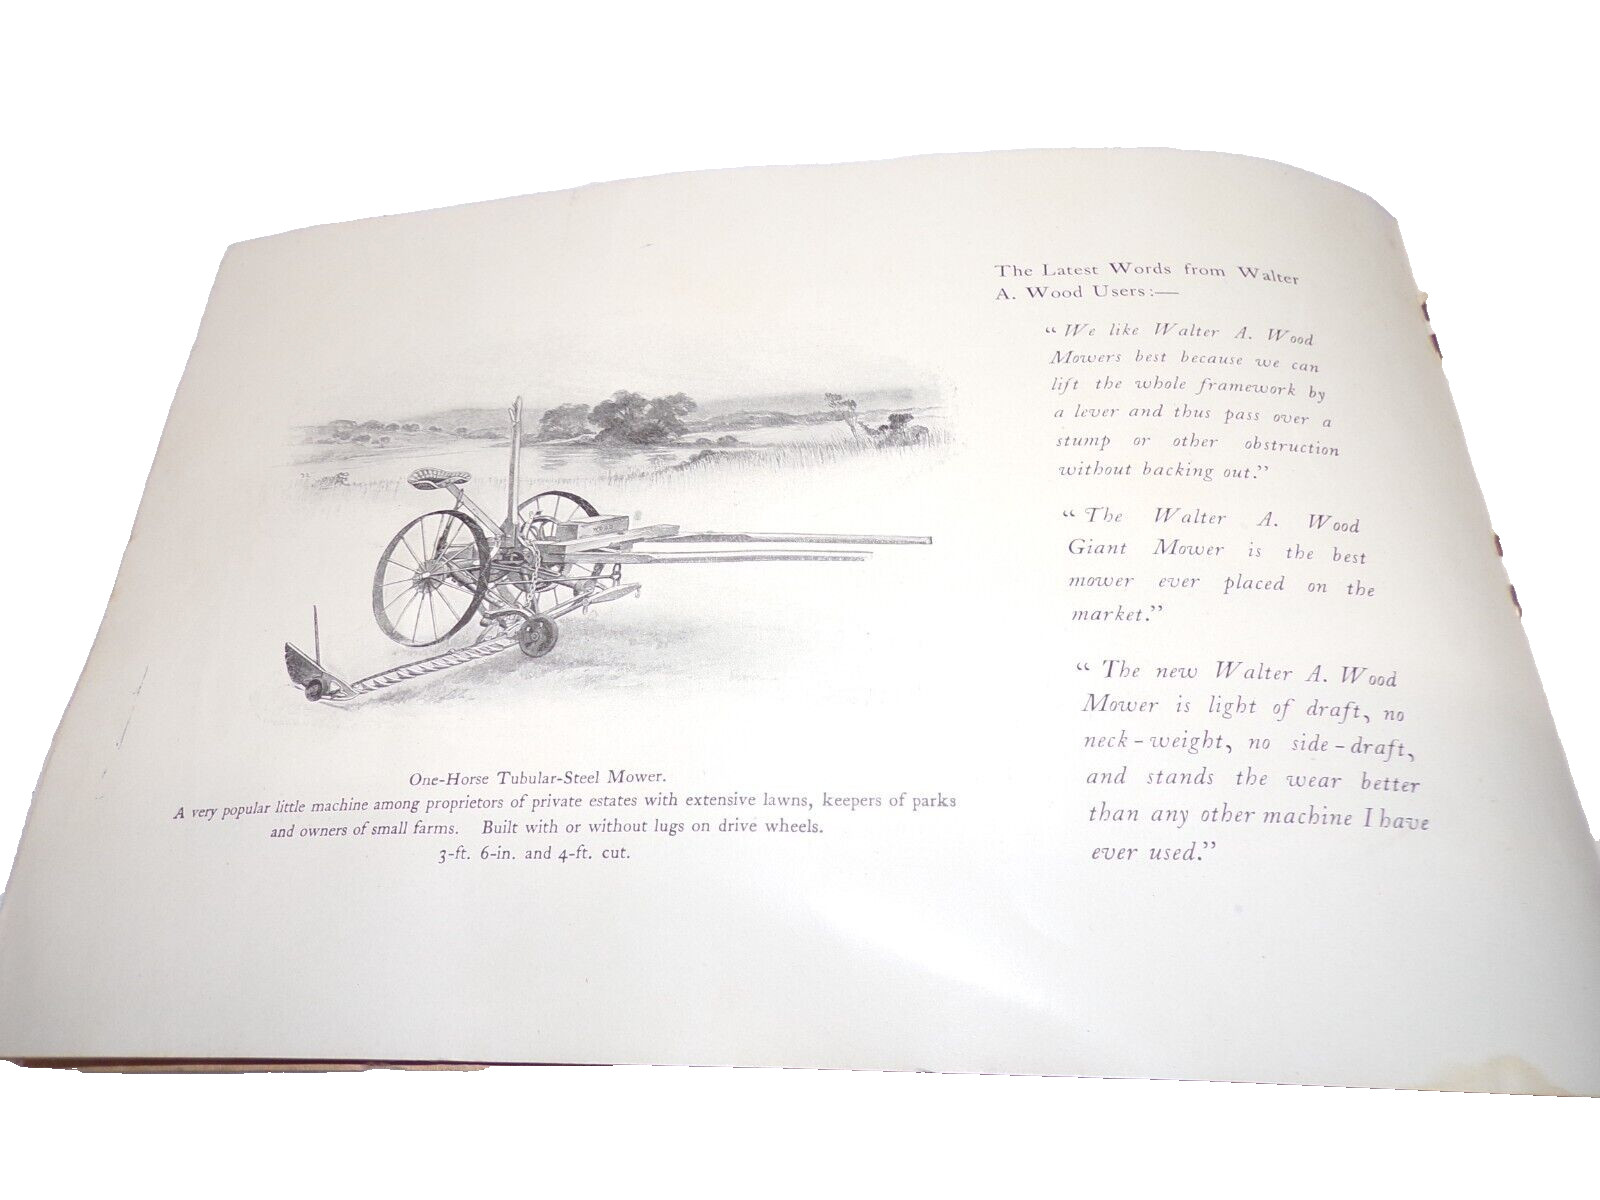 One-Horse Tubular-Steel Mower.
A very popular little machine among proprietors of private estates with extensive lawns, keepers of parks
and owners of small farms. Built with or without lugs on drive wheels.
3-ft. 6-in. and 4-ft. cut.
The Latest Words from Walter
A. Wood Users:—
“We like Walter A. Wood
Mowers best because we can
lift the whole framework by
a lever and thus pass over a
stump or other obstruction
without backing out.”
“The Walter A. Wood
Giant Mower is the best
mower ever placed on the
market.”
“The new Walter A. Wood
Mower is light of draft, no
neck-weight, no side-draft,
and stands the wear better
than any other machine I have
ever used.”